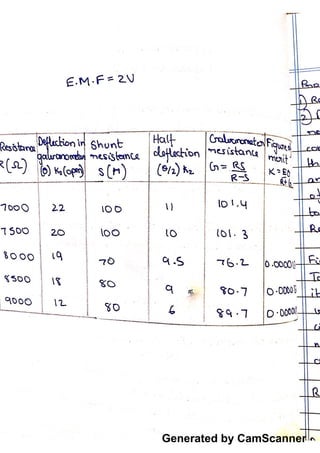 E.M.F = 2V
Resistance R(Ω) | Deflection in galvanometer (θ) K1(open) | Shunt resistance S(M) | Half deflection (θ/2) K2 | Galvanometer resistance G = RS/R-S | Figure merit K =
7000 22 100 11 101.4
7500 20 100 10 101.3
8000 19 70 9.5 76.2
8500 18 80 9 80.7
9000 12 80 6 89.7
Generated by CamScanner